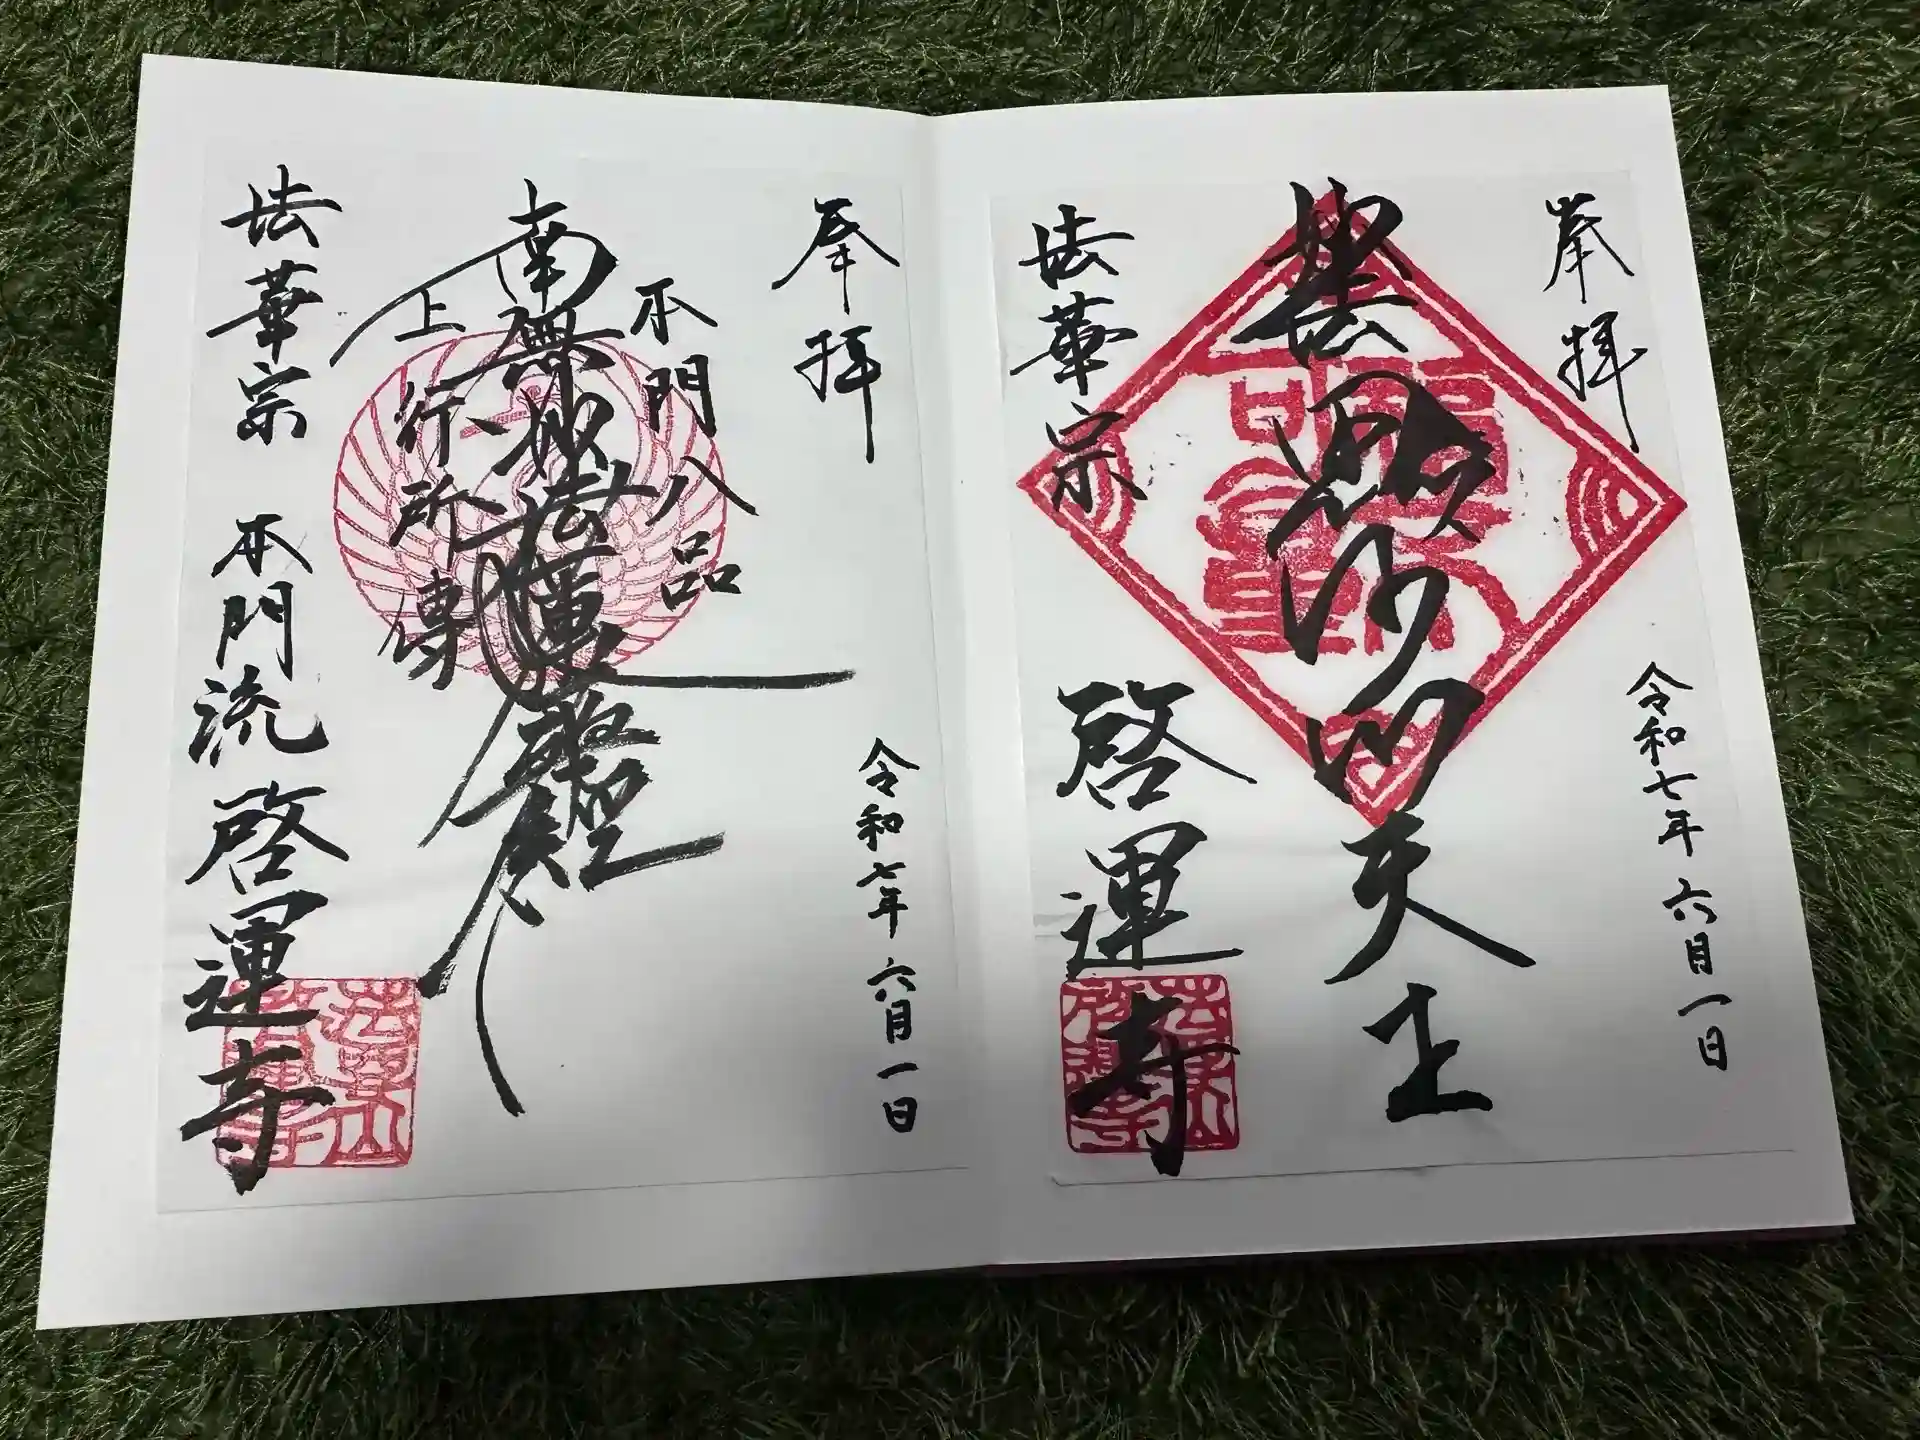 奉拝
令和七年 六月一日
妙法
毘沙門天王
法華宗
啓運寺
奉拝
令和七年 六月一日
本門八品
南無妙法蓮華經
上行所傳
法華宗 本門流 啓運寺